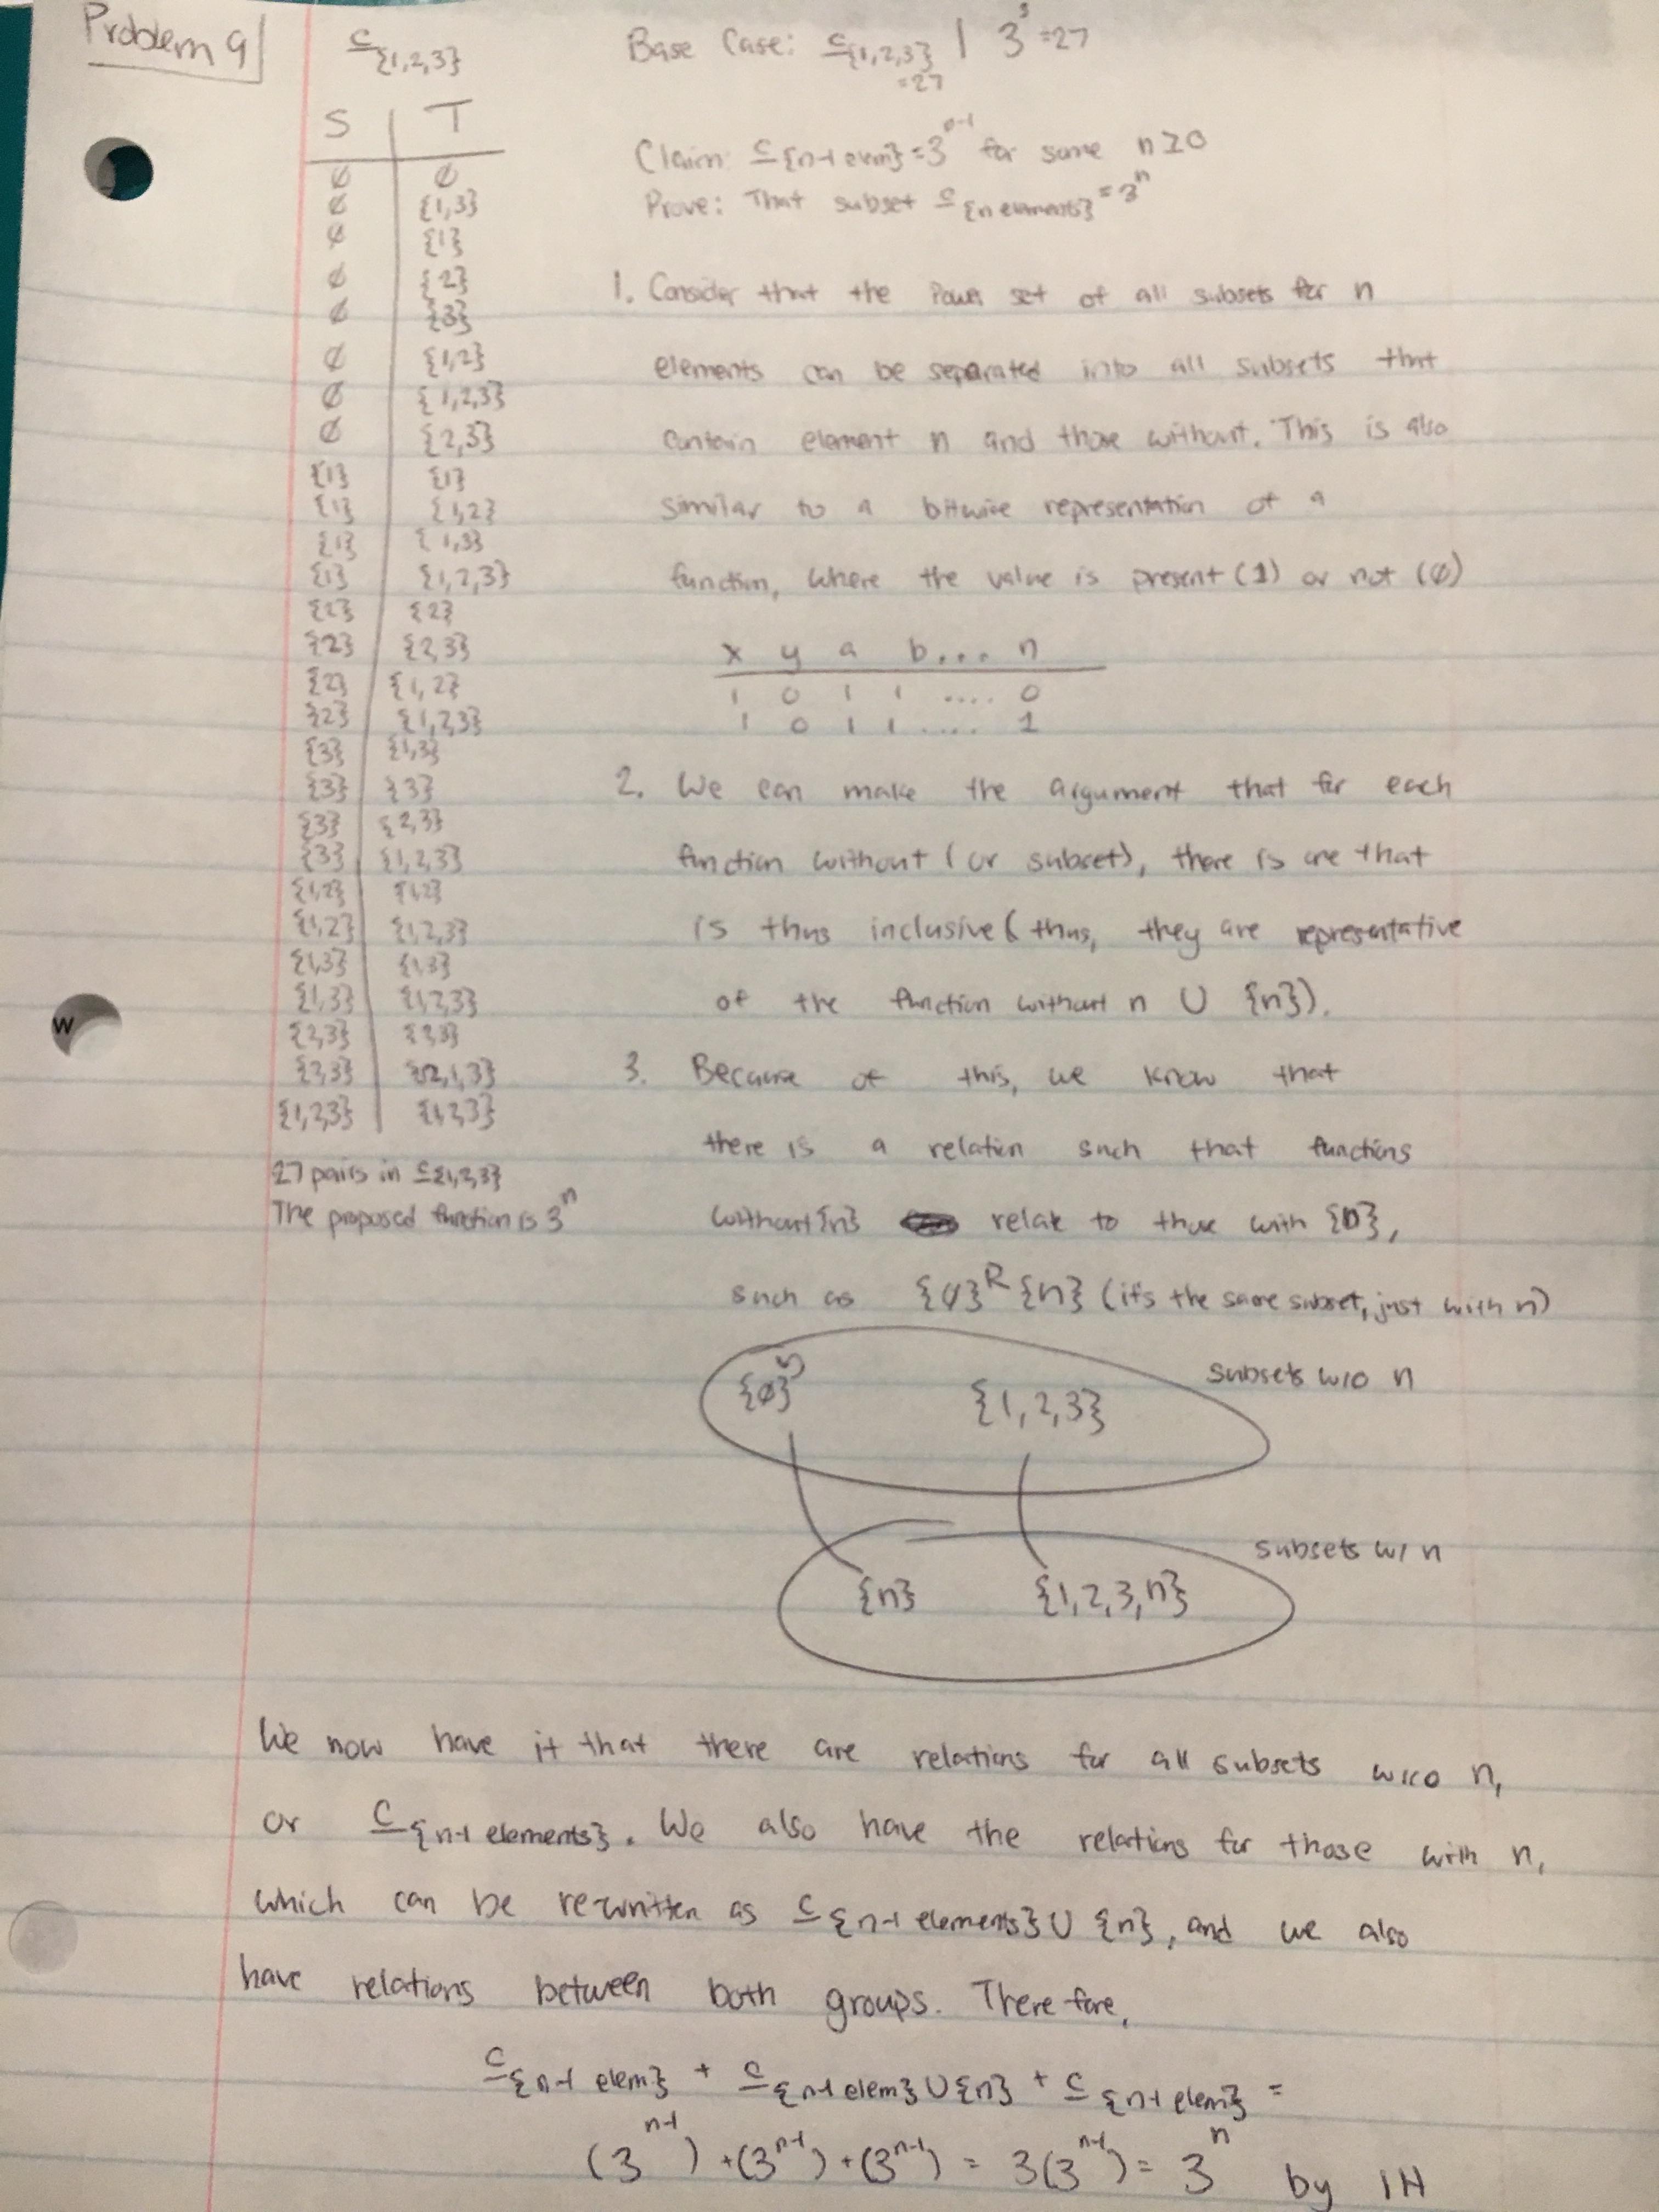 Problem 9
⊆{1,2,3}
S | T
∅ ∅
∅ {1,3}
∅ {1}
∅ {2}
∅ {3}
∅ {1,2}
∅ {1,2,3}
∅ {2,3}
{1} {1}
{1} {1,2}
{1} {1,3}
{1} {1,2,3}
{2} {2}
{2} {2,3}
{2} {1,2}
{2} {1,2,3}
{3} {1,3}
{3} {3}
{3} {2,3}
{3} {1,2,3}
{1,2} {1,2}
{1,2} {1,2,3}
{1,3} {1,3}
{1,3} {1,2,3}
{2,3} {2,3}
{2,3} {2,1,3}
{1,2,3} {1,2,3}
27 pairs in ⊆{1,2,3}
The proposed function is 3^n
Base Case: ⊆{1,2,3} | 3^3 = 27
= 27
Claim: ⊆{n-1 elem} = 3^n-1 for some n ≥ 0
Prove: That subset ⊆{n elements} = 3^n
1. Consider that the Power set of all subsets for n
elements can be separated into all subsets that
contain element n and those without. This is also
similar to a bitwise representation of a
function, where the value is present (1) or not (0)
x y a b... n
1 0 1 1 .... 0
1 0 1 1 .... 1
2. We can make the argument that for each
function without (or subset), there is one that
is thus inclusive (thus, they are representative
of the function without n ∪ {n}).
3. Because of this, we know that
there is a relation such that functions
without {n} relate to those with {n},
such as {∅} R {n} (it's the same subset, just with n)
{∅} {1,2,3} subsets w/o n
{n} {1,2,3,n} subsets w/ n
We now have it that there are relations for all subsets w/o n,
or ⊆{n-1 elements}. We also have the relations for those with n,
which can be rewritten as ⊆{n-1 elements} ∪ {n}, and we also
have relations between both groups. Therefore,
⊆{n-1 elem} + ⊆{n-1 elem} ∪ {n} + ⊆{n-1 elem} =
(3^n-1) + (3^n-1) + (3^n-1) = 3(3^n-1) = 3^n by IH